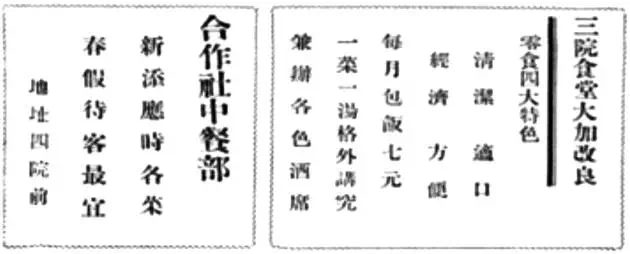 三院食堂大加改良
零食四大特色
清潔適口
經濟方便
每月包飯七元
一菜一湯格外講究
兼辦各色酒席
合作社中餐部
新添應時各菜
春假待客最宜
地址四院前